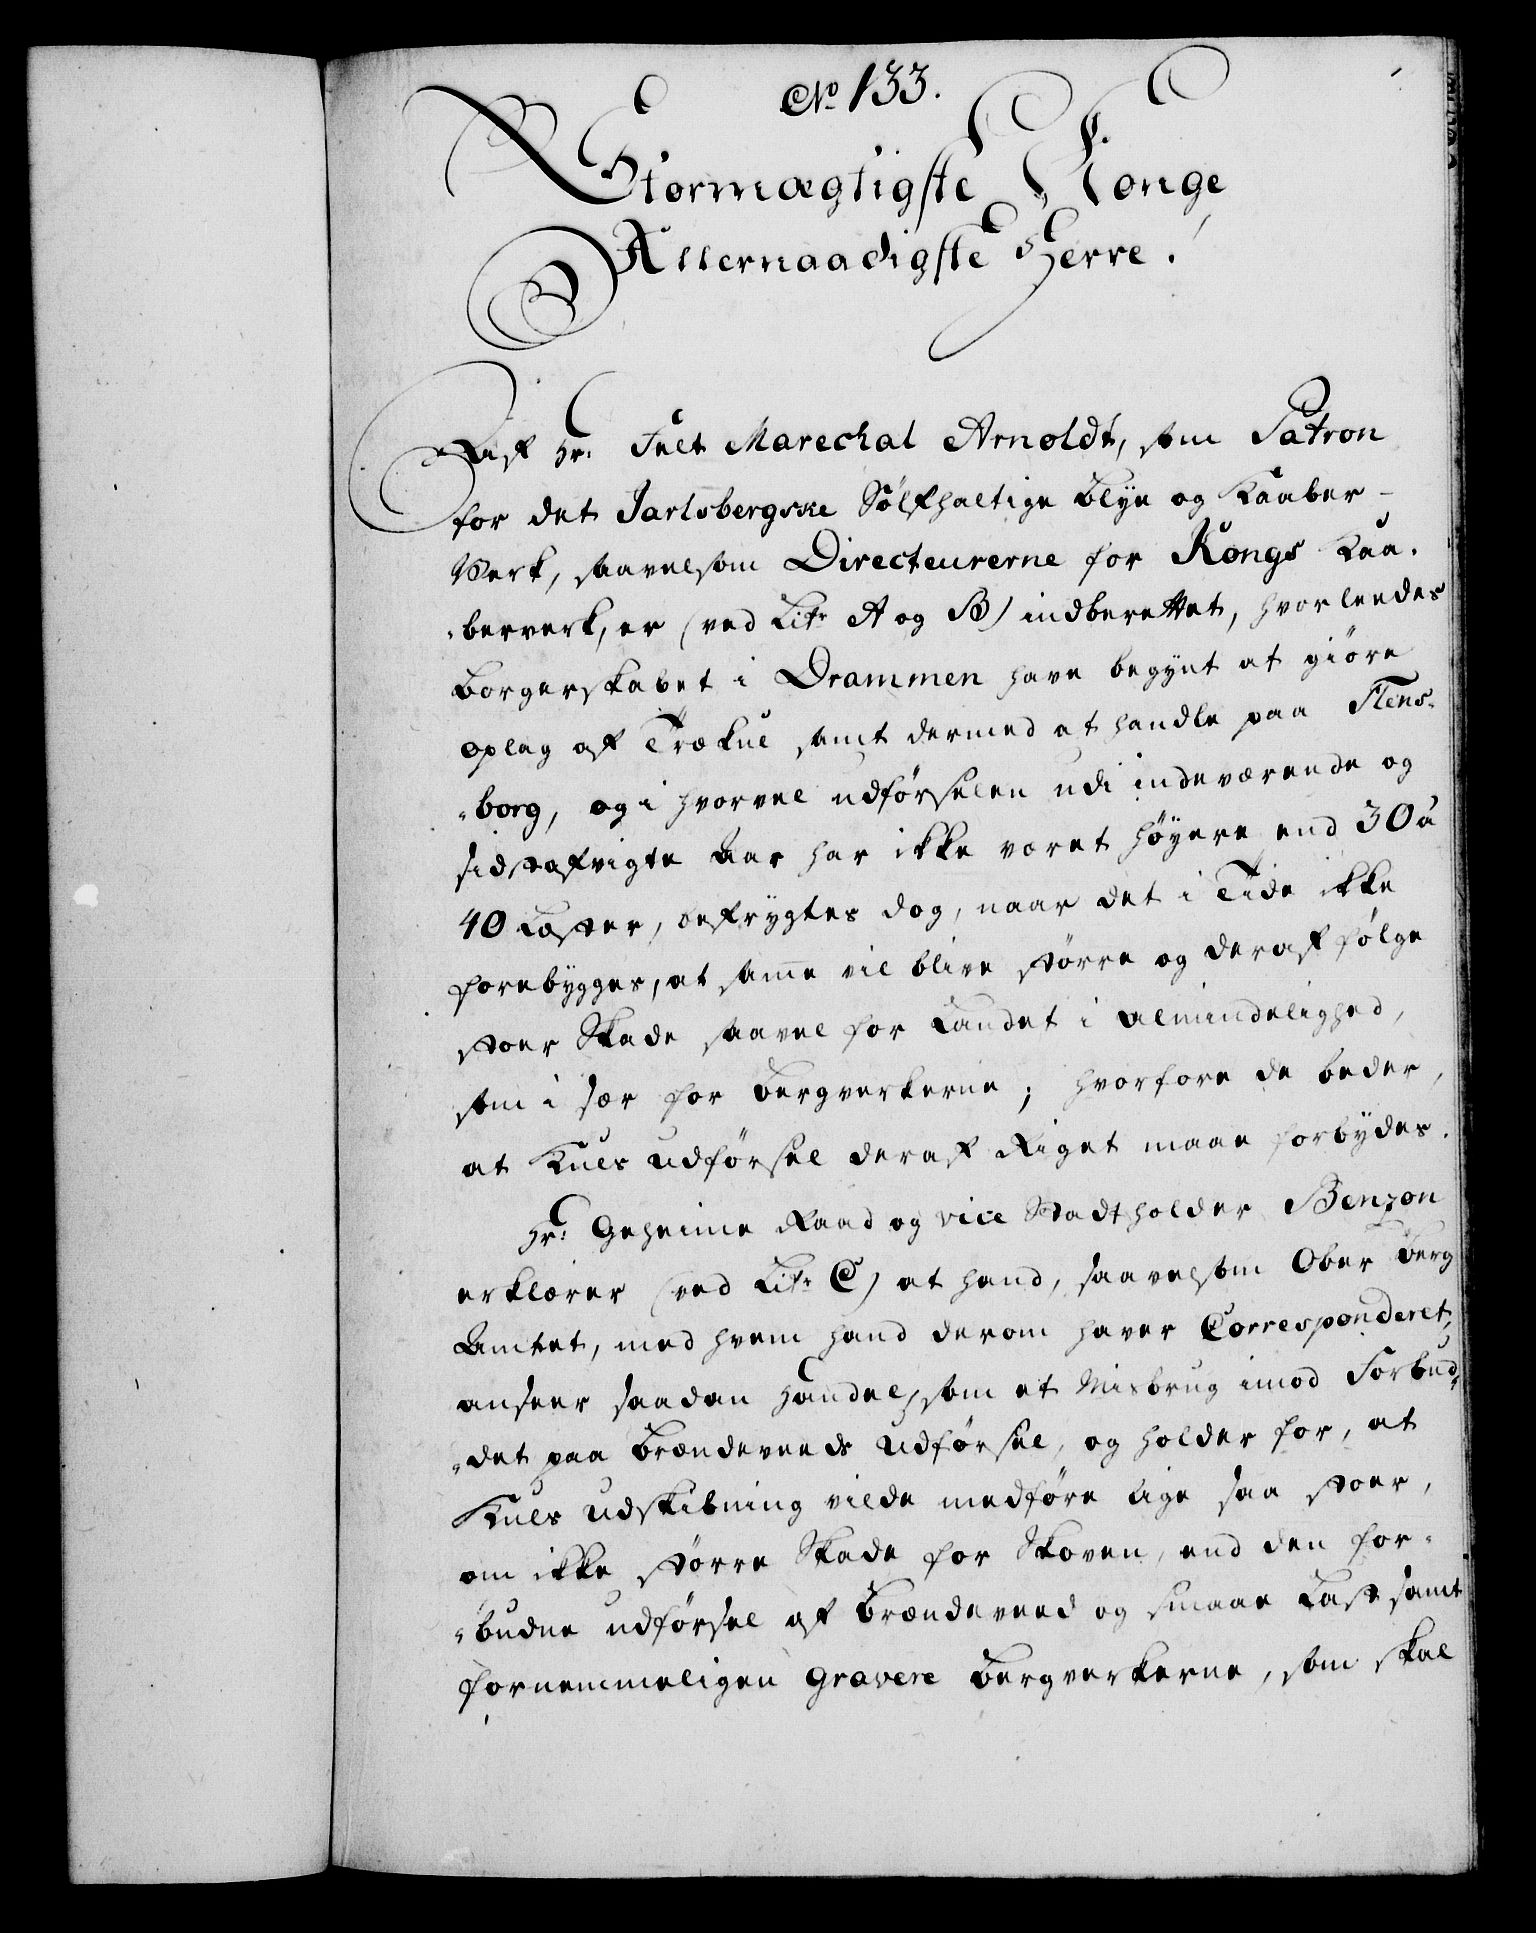 No 133.
Stormægtigste Konge
Allernaadigste Herre!
Af Hr: Felt Marechal Arnoldt, som Patron
for det Jarlsbergske Sølfhaltige Blye og Kaaber-
Verk, saavelsom Directeurerne for Kongs Kaa-
-berverk, er (ved Litr A og B) indberettet, hvorleedes
Borgerskabet i Drammen have begynt at giöre
oplag af Trækul samt dermed at handle paa Flens-
-borg, og i hvorvel udförselen udi indeværende og
sidstafvigte Aar har ikke været höyere end 30 à
40 Læster, befrygtes dog, naar det i Tide ikke
forebygges, at samme vil blive större og deraf fölge
stoer Skade saavel for Landet i Almindelighed,
som i sær for Bergverkerne; hvorfore de beder,
at Kuls udförsel deraf Riget maae forbydes.
Hr: Geheime Raad og vice Stadtholder Benzon
erklærer (ved Litr C) at hand, saavelsom Ober Berg
Amtet, med hvem hand derom haver Corresponderet,
anseer saadan Handel, som et Misbrug imod Forbud-
-det paa Brændeveeds udförsel, og holder for, at
Kuls udskibning vilde medföre lige saa stoer,
om ikke större Skade for Skoven, end den for-
-budne udförsel af Brændeveed og smaae Last samt
fornemmeligen gravere Bergverkerne, som skal